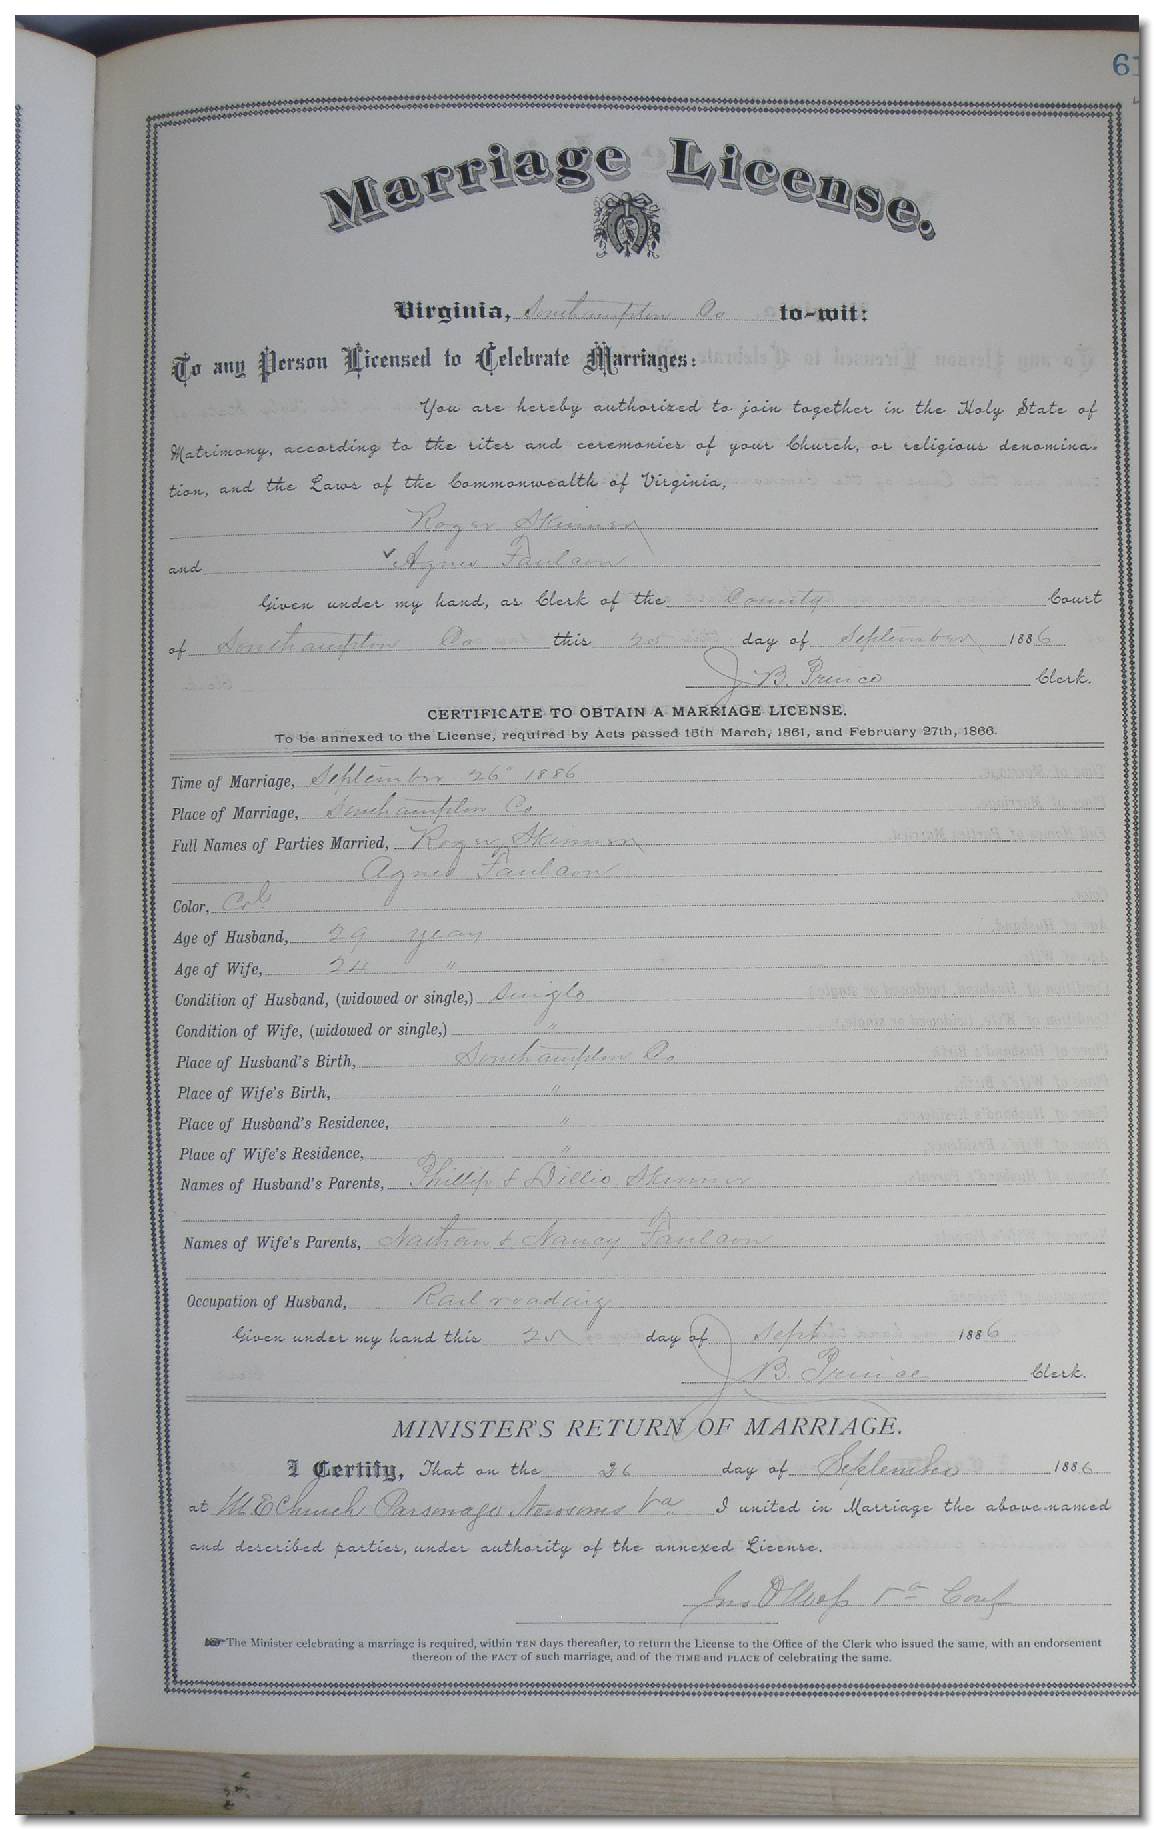 61
Marriage License.
Virginia, Southampton Co to-wit:
To any Person Licensed to Celebrate Marriages:
You are hereby authorized to join together in the Holy State of
Matrimony, according to the rites and ceremonies of your Church, or religious denomina-
tion, and the Laws of the Commonwealth of Virginia,
Roger Skinner
and Agnes Faulcon
Given under my hand, as Clerk of the County Court
of Southampton Co this 25 day of September 1886
J. B. Prince Clerk.
CERTIFICATE TO OBTAIN A MARRIAGE LICENSE.
To be annexed to the License, required by Acts passed 15th March, 1861, and February 27th, 1866.
Time of Marriage, September 26" 1886
Place of Marriage, Southampton Co
Full Names of Parties Married, Roger Skinner
Agnes Faulcon
Color, Cold
Age of Husband, 29 years
Age of Wife, 24 "
Condition of Husband, (widowed or single,) Single
Condition of Wife, (widowed or single,) "
Place of Husband's Birth, Southampton Co
Place of Wife's Birth, "
Place of Husband's Residence, "
Place of Wife's Residence, "
Names of Husband's Parents, Phillip & Dillie Skinner
Names of Wife's Parents, Nathan & Nancy Faulcon
Occupation of Husband, Railroading
Given under my hand this 25 day of Sept 1886
J B. Prince Clerk.
MINISTER'S RETURN OF MARRIAGE.
I Certify, That on the 26 day of September 1886
at M E Church Parsonage Newsoms Va I united in Marriage the above-named
and described parties, under authority of the annexed License.
Jno Va Conf
The Minister celebrating a marriage is required, within TEN days thereafter, to return the License to the Office of the Clerk who issued the same, with an endorsement
thereon of the FACT of such marriage, and of the TIME and PLACE of celebrating the same.